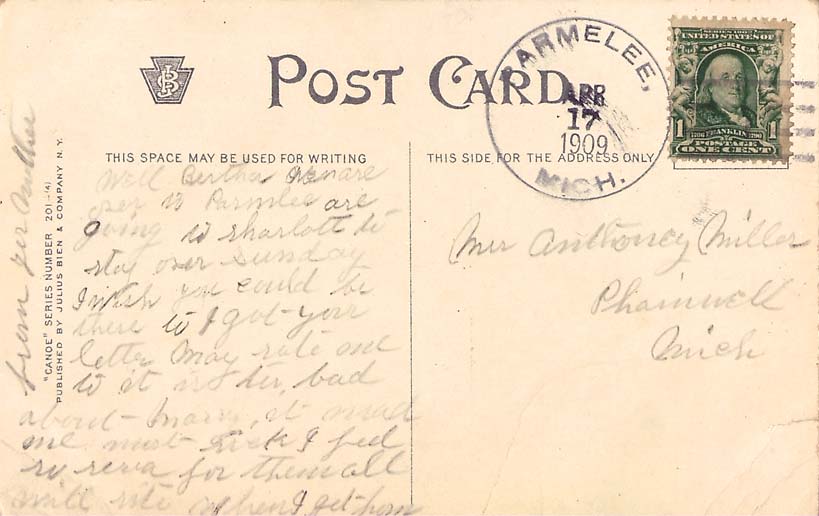 POST CARD
THIS SPACE MAY BE USED FOR WRITING
THIS SIDE FOR THE ADDRESS ONLY
PARMELEE,
APR
17
1909
MICH.
SERIES 1902
UNITED STATES OF
AMERICA
1 1706 FRANKLIN 1790 1
POSTAGE
ONE CENT
"CANOE" SERIES NUMBER 201-(4)
PUBLISHED BY JULIUS BIEN & COMPANY N. Y.
Well Bertha
Parmlee are
going to sharlott to
stay over Sunday
I wish you could be
there to I got your
letter May rote me
to it is bad
about it mad
me most sick I feel
for them all
will rite when I get hom
from yer Mother
Mrs Anthoney Miller
Plainwell
Mich